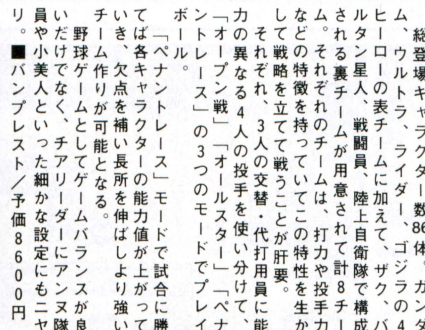 総登場キャラクター数86体。ガンダ
ム、ウルトラ、ライダー、ゴジラの4
ヒーローの表チームに加えて、ザク、バ
ルタン星人、戦闘員、陸上自衛隊で構成
される裏チームが用意されて計8チー
ム。それぞれのチームは、打力や投手力
などの特徴を持っていてこの特性を生か
して戦略を立てて戦うことが肝要。
それぞれ、3人の交替・代打用員に能
力の異なる4人の投手を使い分けて、
「オープン戦」「オールスター」「ペナ
ントレース」の3つのモードでプレイ
ボール。
「ペナントレース」モードで試合に勝
てば各キャラクターの能力値が上がって
いき、欠点を補い長所を伸ばしより強い
チーム作りが可能となる。
野球ゲームとしてゲームバランスが良
いだけでなく、チアリーダーにアンヌ隊
員や小美人といった細かな設定にもニヤ
リ。■バンプレスト/予価8600円